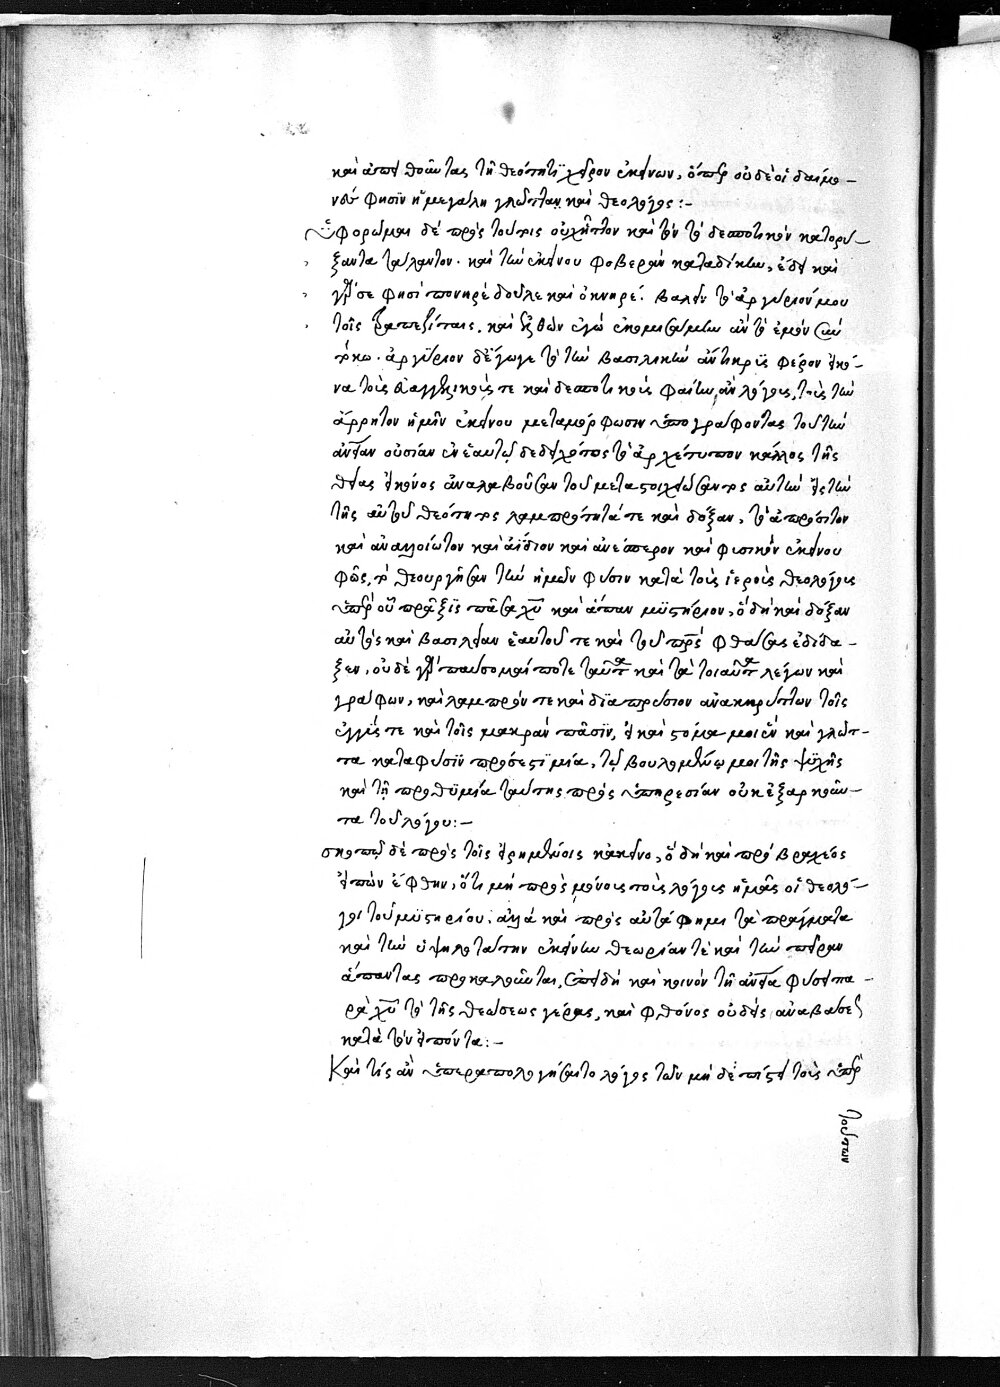 καὶ ἀπειθοῦντας τῆ θεότητι χεῖρον ἐκείνων, ὅπερ οὐδὲ οἱ δαίμο-
νες φησὶν ἡ μεγάλη γλῶττα καὶ θεολόγος:-
Ὑφορῶμαι δὲ πρὸς τούτοις οὐχῆττον καὶ τὸν τὸ δεσποτικὸν κατορύ-
ξαντα τάλαντον. καὶ τὴν ἐκείνου φοβερὰν καταδίκην, ἔδει καὶ
γάρ σε φησὶ πονηρὲ δοῦλε καὶ ὀκνηρέ. βαλεῖν τὸ ἀργύριόν μου
τοῖς τραπεζίταις. καὶ ἐλθὼν ἐγὼ ἐκομισάμην ἂν τὸ ἐμὸν σὺν
τόκω. ἀργύριον δ' ἔγωγε τὸ τὴν βασιλικὴν ἄντικρυς φέρον εἰκό-
να τοὺς εὐαγγελικούς τε καὶ δεσποτικοὺς φαίην ἂν λόγους, τοὺς τὴν
ἄρρητον ἡμῖν ἐκείνου μεταμόρφωσιν ὑπογράφοντας τοῦ τὴν
ἀνθρωπείαν οὐσίαν ἐν ἑαυτῷ δεδειχότος τὸ ἀρχέτυπον κάλλος τῆς
θείας εἰκόνος ἀναλαβοῦσαν τοῦ μεταστοιχειώσαντος αὐτὴν εἰς τὴν
τῆς αὐτοῦ θεότητος λαμπρότητά τε καὶ δόξαν, τὸ ἀπρόσιτον
καὶ ἀναλλοίωτον καὶ ἀΐδιον καὶ ἀνέσπερον καὶ φυσικὸν ἐκείνου
φῶς, τὸ θεουργῆσαν τὴν ἡμῶν φύσιν κατὰ τοὺς ἱεροὺς θεολόγους
ὑπὲρ οὗ πρᾶξις πᾶσα χυ καὶ ἅπαν μυστήριον, ὃ δὴ καὶ δόξαν
αὐτὸς καὶ βασιλείαν ἑαυτοῦ τε καὶ τοῦ πρς φθάσας ἐδίδα-
ξεν, οὐδὲ γὰρ παύσομαί ποτε ταῦτα καὶ τὰ τοιαῦτα λέγων καὶ
γράφων, καὶ λαμπρόν τε καὶ διαπρύσιον ἀνακηρύττων τοῖς
ἐγγύς τε καὶ τοῖς μακρὰν πᾶσιν, εἰ καὶ στόμα μοι ἓν καὶ γλῶτ-
τα κατὰ φύσιν πρόσεστι μία, τῷ βουλομένῳ μοι τῆς ψυχῆς
καὶ τῆ προθυμία ταύτης πρὸς ὑπηρεσίαν οὐκ ἐξαρκοῦν-
τα τοῦ λόγου:-
σκοπῶ δὲ πρὸς τοῖς εἰρημένοις κἀκεῖνο, ὃ δὴ καὶ πρὸ βραχέος
εἰπὼν ἔφθην, ὅτι μὴ πρὸς μόνους τοὺς λόγους ἡμᾶς οἱ θεολό-
γοι τοῦ μυστηρίου. ἀλλὰ καὶ πρὸς αὐτά φημι τὰ πράγματα
καὶ τὴν ὑψηλοτάτην ἐκείνων θεωρίαν τὲ καὶ τὴν πεῖραν
ἅπαντας προκαλοῦνται, ἐπειδὴ καὶ κοινὸν τῆ ἀνθρωπεία φύσει πα-
ρὰ χυ τὸ τῆς θεώσεως γέρας, καὶ φθόνος οὐδεὶς ἀναβάσεως
κατὰ τὸν εἰπόντα:-
Καὶ τίς ἂν ὑπεραπολογήσαιτο λόγος τῶν μηδὲ πίστει τοὺς ὑπὲρ